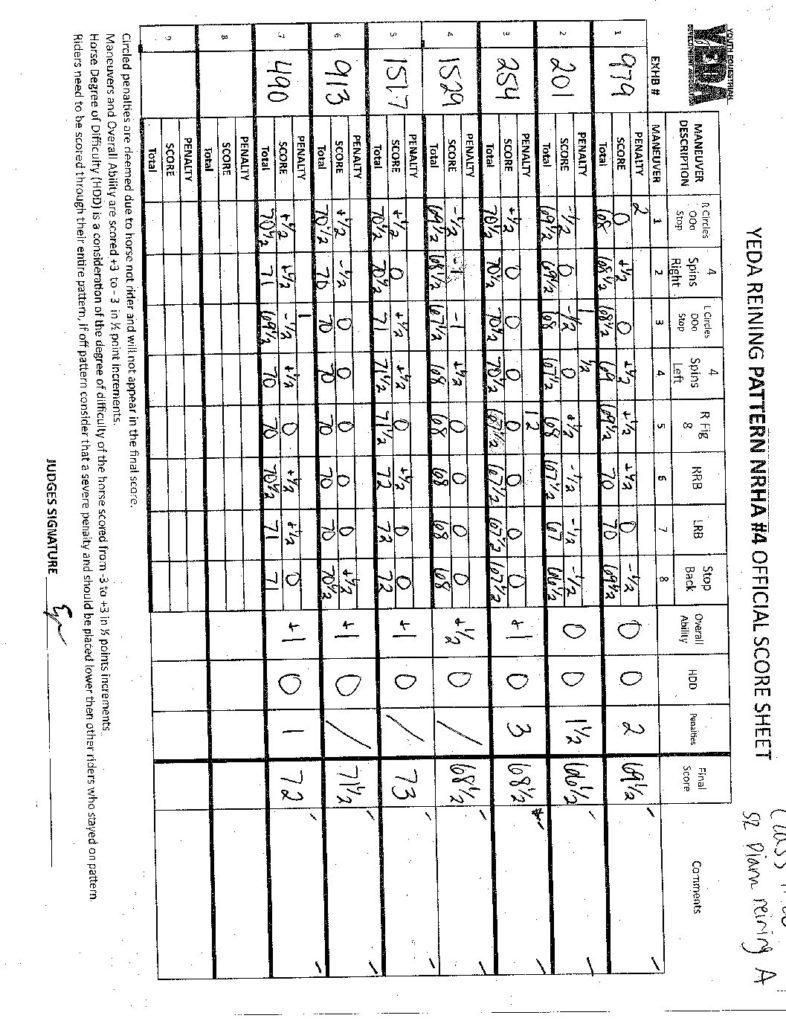 YOUTH EQUESTRIAN
YEDA
DEVELOPMENT ASSOCIATION
YEDA REINING PATTERN NRHA #4 OFFICIAL SCORE SHEET
S2 Diam reining A
EXHB # MANEUVER DESCRIPTION R Circles OOo Stop 4 Spins Right L Circles OOo Stop 4 Spins Left R Fig 8 RRB LRB Stop Back Overall Ability HDD Penalties Final Score Comments
MANEUVER 1 2 3 4 5 6 7 8
1 979 PENALTY 2
SCORE 0 +1/2 0 +1/2 +1/2 +1/2 0 -1/2 0 0 2 69 1/2
Total 68 68 1/2 68 1/2 69 69 1/2 70 70 69 1/2
2 201 PENALTY 1 1/2
SCORE -1/2 0 -1/2 0 +1/2 -1/2 -1/2 -1/2 0 0 1 1/2 66 1/2
Total 69 1/2 69 1/2 68 67 1/2 68 67 1/2 67 66 1/2
3 254 PENALTY 1 2
SCORE +1/2 0 0 0 0 0 0 0 +1 0 3 68 1/2
Total 70 1/2 70 1/2 70 1/2 70 1/2 67 1/2 67 1/2 67 1/2 67 1/2
4 1529 PENALTY
SCORE -1/2 -1 -1 +1/2 0 0 0 0 +1/2 0 / 68 1/2
Total 69 1/2 68 1/2 67 1/2 68 68 68 68 68
5 1517 PENALTY
SCORE +1/2 0 +1/2 +1/2 0 +1/2 0 0 +1 0 / 73
Total 70 1/2 70 1/2 71 71 1/2 71 1/2 72 72 72
6 913 PENALTY
SCORE +1/2 -1/2 0 0 0 0 0 +1/2 +1 0 / 71 1/2
Total 70 1/2 70 70 70 70 70 70 70 1/2
7 490 PENALTY 1
SCORE +1/2 +1/2 -1/2 +1/2 0 +1/2 +1/2 0 +1 0 1 72
Total 70 1/2 71 69 1/2 70 70 70 1/2 71 71
8 PENALTY
SCORE
Total
9 PENALTY
SCORE
Total
Circled penalties are deemed due to horse not rider and will not appear in the final score.
Maneuvers and Overall Ability are scored +3 to - 3 in ½ point increments.
Horse Degree of Difficulty (HDD) is a consideration of the degree of difficulty of the horse scored from -3 to +3 in ½ points increments.
Riders need to be scored through their entire pattern, if off pattern consider that a severe penalty and should be placed lower then other riders who stayed on pattern.
JUDGES SIGNATURE